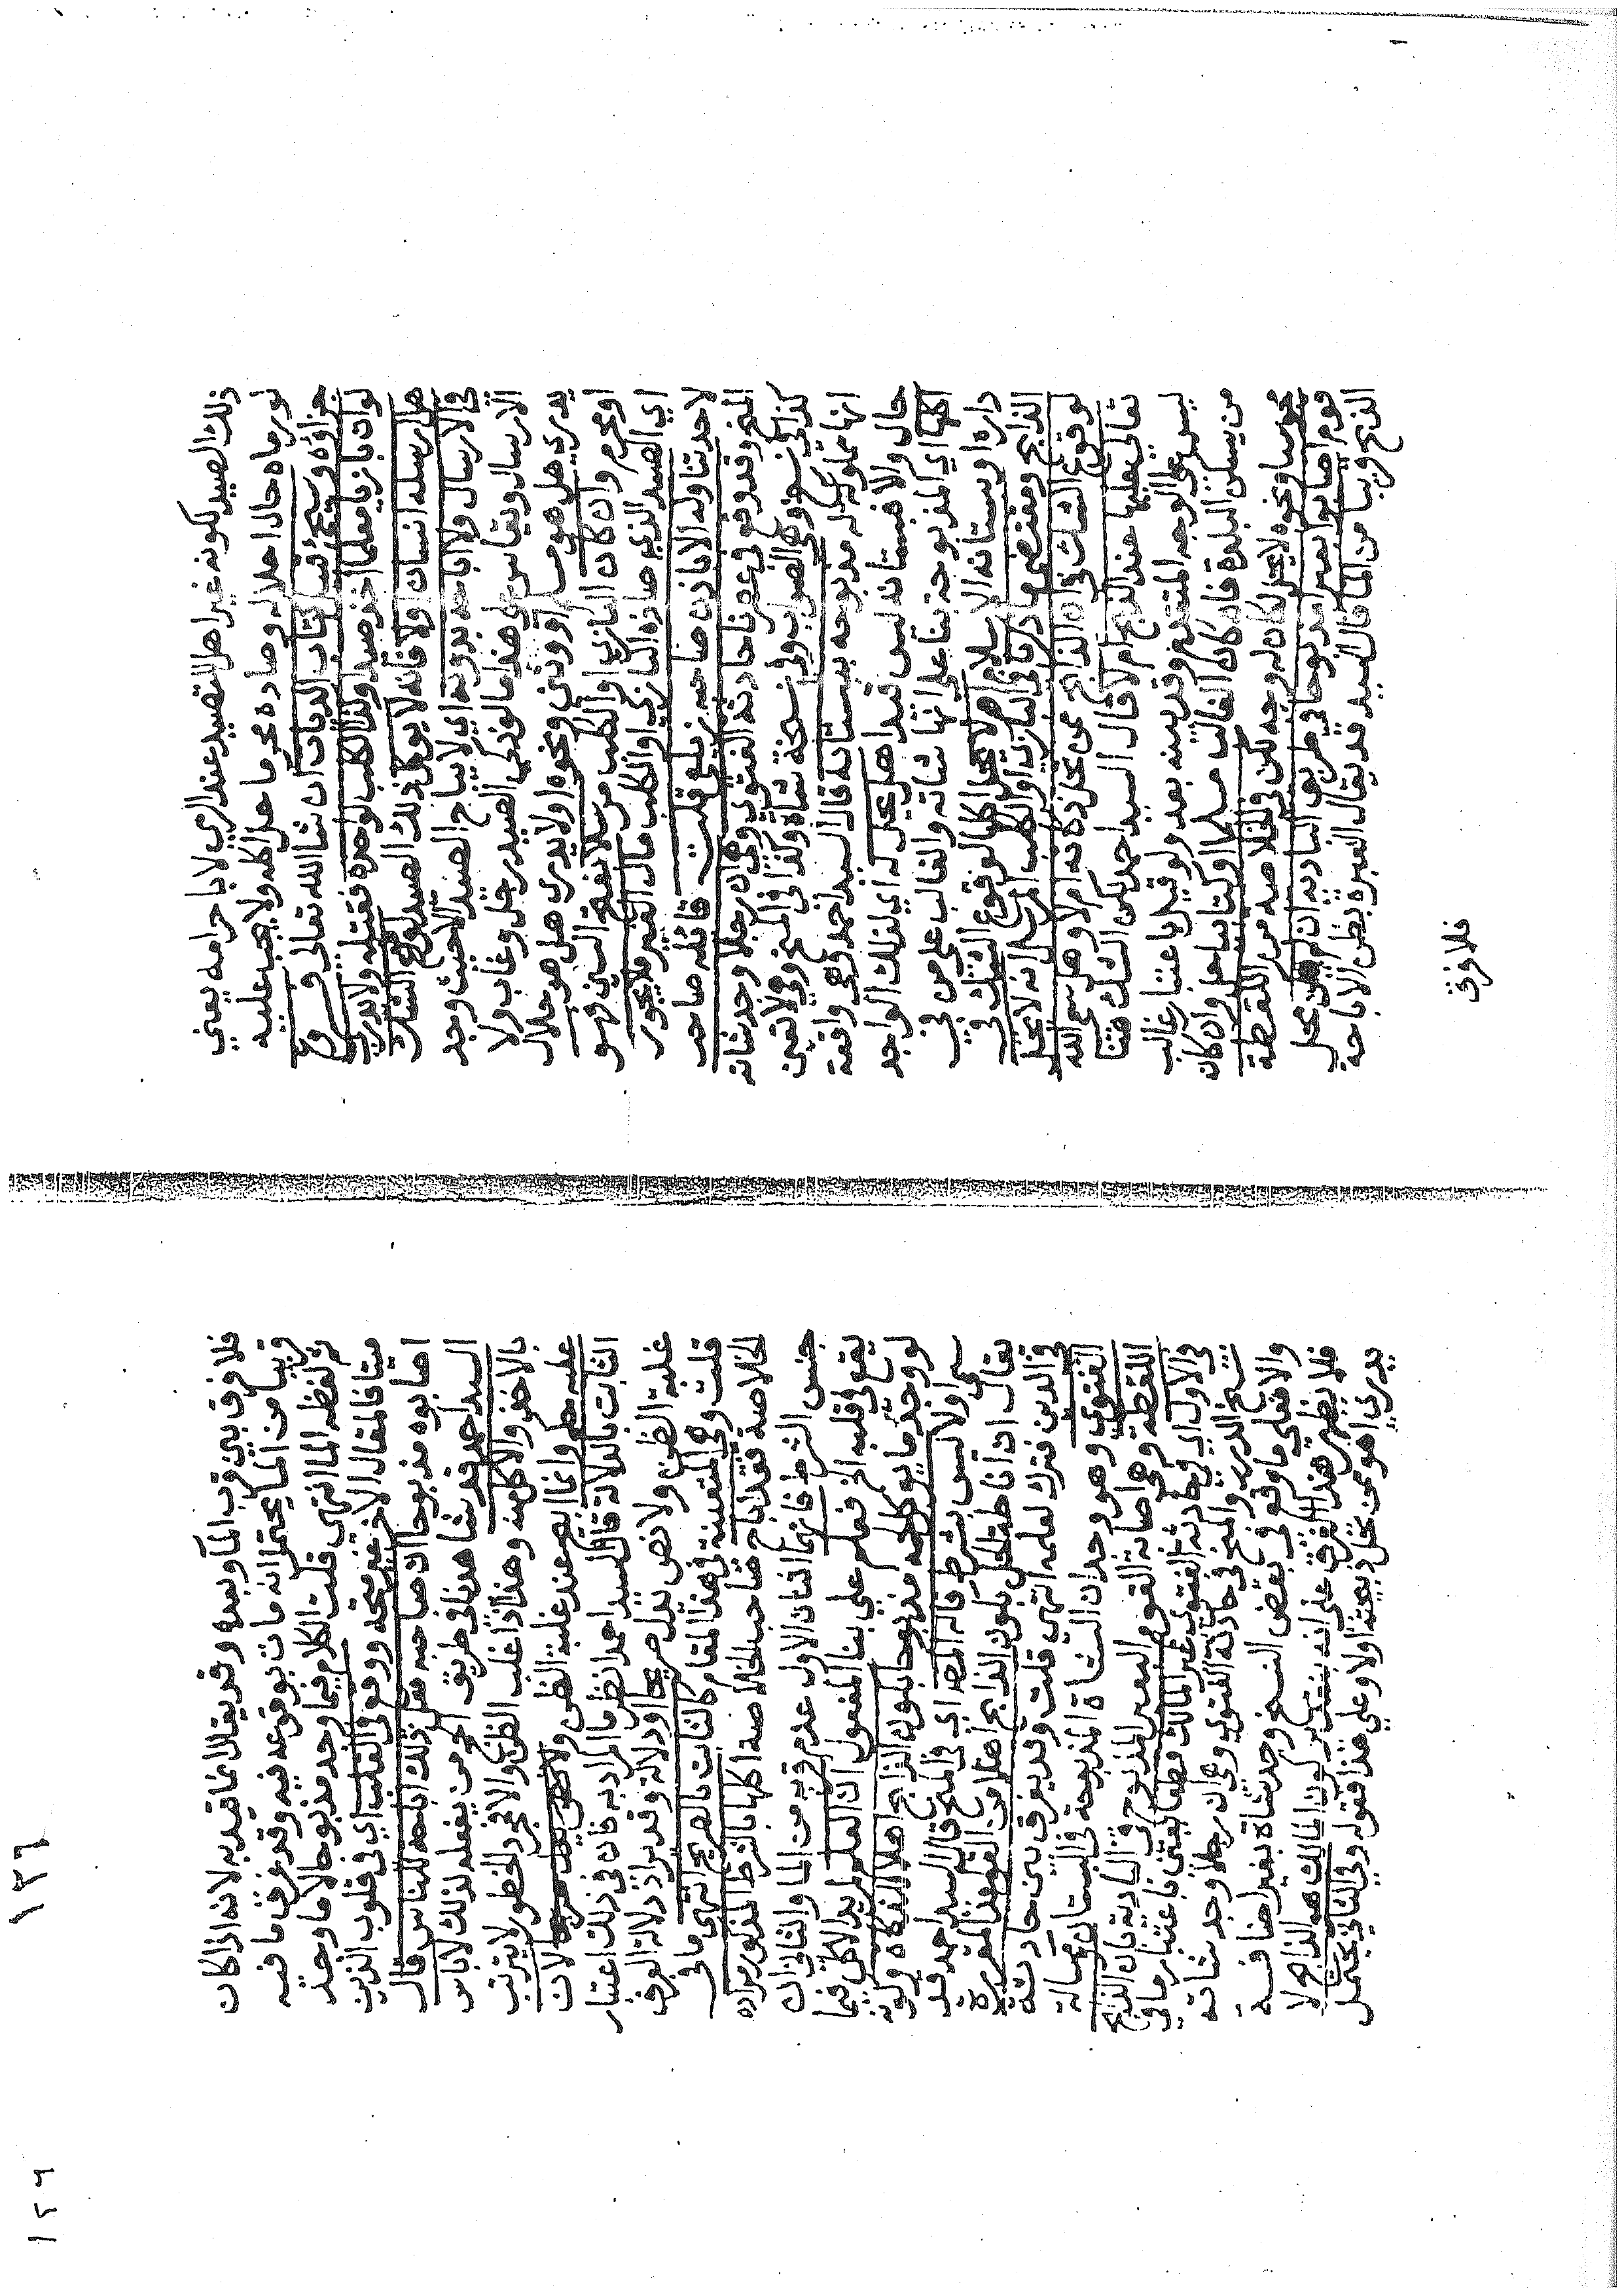 ذلك الصيد لكونه غير اهل للتصيد عند الرمي لا باحرامه يعني
لو رماه حال احلاله وصاده محرما حل اكله ولا يجب عليه
جزاؤه وسيجئ قبيل كتاب الديات ان شا الله تعالي فرع
لو ان بازيا معلما اخذ صيدا وكذا الكلب لو جره فقتله ولا يدري
هل ارسله انسان ولا فانه لا يوكل ذلك الصيد لوقوع الشك
في الارسال ولا اباحه بدونه اي لا يباح الصيد الا حيث وجد
الارسال ويقاس علي هذا ما لو ذكي الصيد رجل وغاب ولا
يدري هل هو مسلم او وثني ونحوه او لا يدري هل هو حلال
او محرم وان كان البازي او الكلب مرسلا بفتح السين فهو
اي الصيد الذي صاده البازي او الكلب مال الغير فلا يجوز
لاحد تناوله الا باذن صاحبه زيلعي قلت قائله صاحب
المنح وقد وقع في عصرنا حادثة الفتوي وهي ان رجلا وجد شاته
كذا في نسخ وهي الصواب وفي نسخة شاة وكذا في المنح وهي لا تعين
انها مملوكة له مذبوحة ببستانه قال السيد احمد وهي واقعة
حال والا فبستانه ليس قيدا هل يحل له اي لذلك الواجد
اكلها اي المذبوحة بنا علي انها شاته والغالب علي من في
داره او بستانه الاسلام ام لا يحل اكلها لوقوع الشك في
الذابح ومقتضي ما ذكرنا في البازي او الكلب المرسل انه لا يحل
لوقوع الشك في ان الذابح ممن تحل ذكاته ام لا وهل سمي الله
تعالي عليها عند الذبح ام لا قال السيد احمد لكن الشك هنا
ليس علي الوجه المتقدم وقد بينه بعد ولو قيل باعتبار غالب
من يسكن البلدة فان كان الغالب مسلما او كتابيا حل وان كان
مجوسيا ونحوه لا يحل لكان له وجه لكن في الخلاصة من اللقطة
قوم اصابوا بعيرا مذبوحا في طريق البادية ان لم يكن يحل
الذبح قريبا من الما قال السيد قد يقال العبرة بظن الاباحة
فلا فرق
فلا فرق بين قرب الما وبعده وقد يقال انما قيد به لانه اذا كان
قريبا من الما يحتمل انه مات بوقوعه فيه وقد عرف ما فيه
لفظه الما انتهي قلت الكلام فيما وجد مذبوحا لا ما وجد
ميتا فالمقال الاخير غير متجه ووقع في القلب اي في قلوب الذين
اصابوه مذبوحا ان صاحبه فعل ذلك اباحه للناس قال
السيد احمد قد شاهدنا في طريق الحج من يفعله لذلك لا باس
بالاخذ والاكل منه وهذا اذا غلب الظن والا فمجرد الخطور لا يترتب
عليه حكم وانما البصر عند غلبة الظن لان
الثابت بالدلالة قال السيد احمد انظر ما المراد به فان في ذلك اعتبار
غلبة الظن ولا نص يدل صريحا او دلالة وقد يراد دلالة العرف
قلت وهي المتعينة في هذا المقام كالثابت بالصريح انتهي ما في
الخلاصة فقد اباح صاحب الخلاصة اكلها بالشرط المذكور مراده
جنس الشرط فانهما اثنان الاول عدم قربه من الما والثاني ان
يقع في قلبه الخ فعلم علي بنا المفعول ان العلم لمريد الاكل فيما
لو وجد ما يوكل لحمه مذبوحا بكون الذابح اهلا للذكاة وكونه
سمي اولا ليس بشرط قاله المص اي في المنح قال السيد احمد قد
يقال ان اناطة الحل بكون الذابح اهلا من القواعد المقررة
في الدين فترك لعلمه انتهي قلت وقد يفرق بين حادثة
الفتوي وهو وجدان الشاة المذبوحة في البستان ومسالة
اللقطة وهي اصابة القوم البعير المذبوح في البادية بان الذبح
في الاول اي في حادثة الفتوي غير المالك قطعا يعني باعتبار ما في
نسخ الدرر والمنح في حادثة الفتوي وهي ان رجلا وجد شاته
والا فعلي ما وقع في بعض النسخ وجد شاة بغير اضافة
فلا يظهر هذا الفرق علي انه بتقدير كون المالك هو الذابح لا
يدري اهو ممن تحل ذبيحته اولا وعلي هذا فقوله وفي الثاني يحتمل
١٢٦
١٢٦